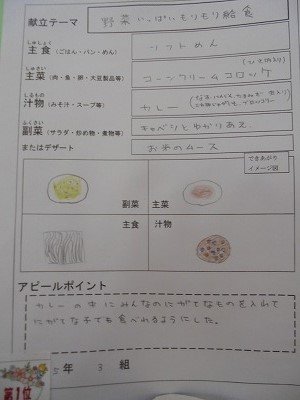 献立テーマ 野菜いっぱいもりもり給食
しゅしょく
主食(ごはん・パン・めん) ソフトめん
しゅさい (ひき肉入り)
主菜(肉・魚・卵・大豆製品等) コーンクリームコロッケ
しるもの
汁物(みそ汁・スープ等) カレー
ふくさい
副菜(サラダ・炒め物・煮物等) キャベツとゆかりあえ
またはデザート お米のムース
できあがり
イメージ図
副菜 主菜
主食 汁物
アピールポイント
カレーの中にみんなのにがてなものを入れて
にがてな子でも食べれるようにした。
5年 3 組
第1位